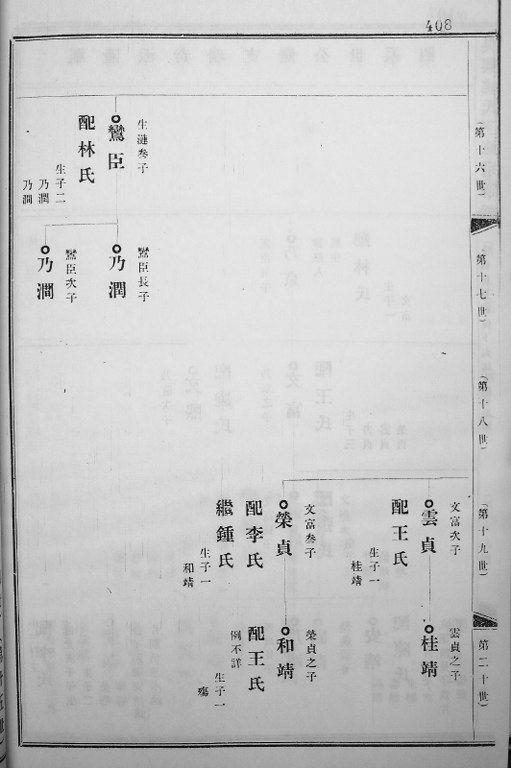 408
（第十六世）
生漣叁子
鸞臣
配林氏
生子二
乃潤
乃澗
（第十七世）
鸞臣長子
乃潤
鸞臣次子
乃澗
（第十八世）
（第十九世）
文富次子
雲貞
配王氏
生子一
桂靖
文富叁子
榮貞
配李氏
繼鍾氏
生子一
和靖
（第二十世）
雲貞之子
桂靖
榮貞之子
和靖
配王氏
例不詳
生子一